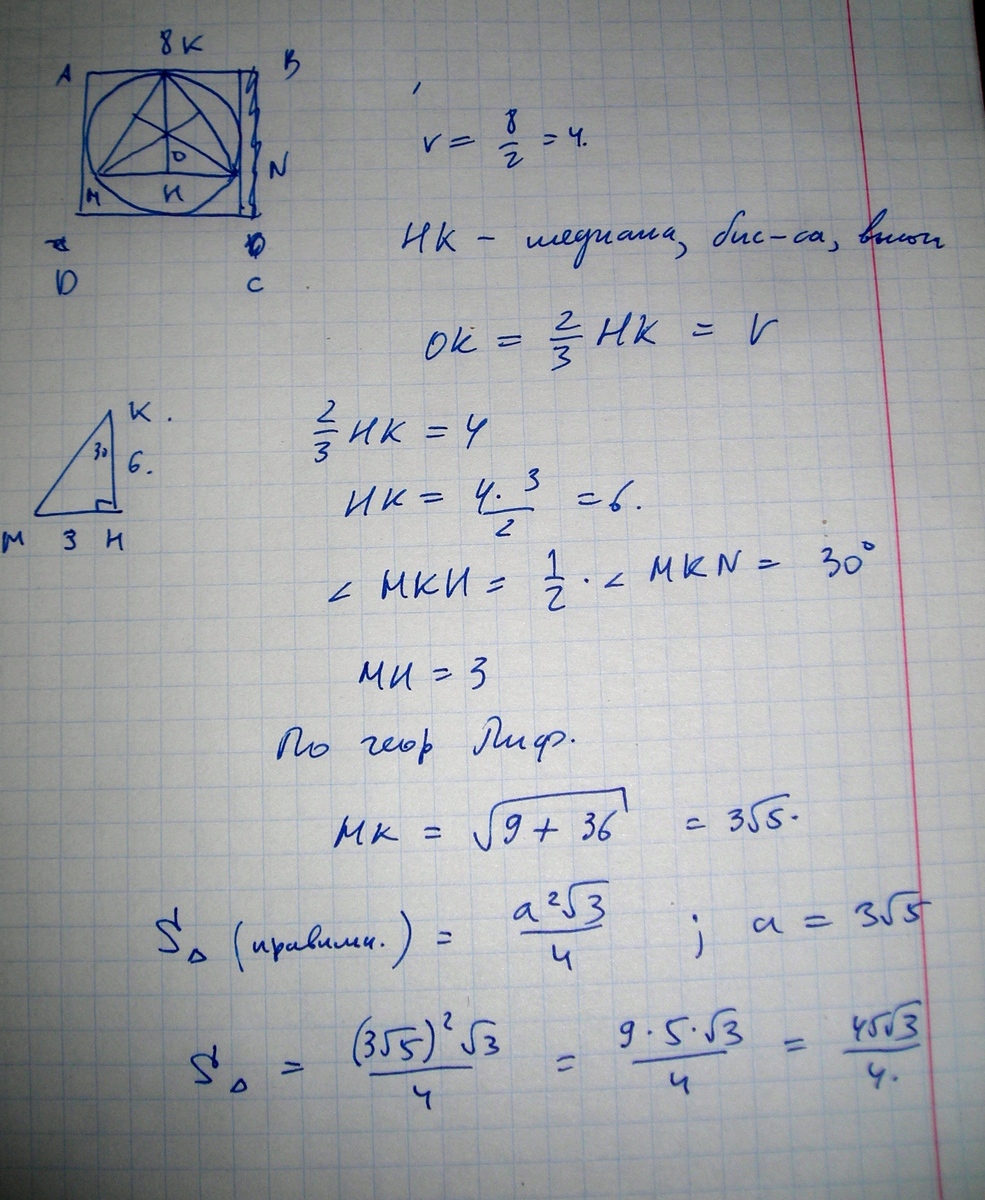 8 K
A B
r = 8/2 = 4.
O N
M H
HK – медиана, бис-са, высот
D C
OK = 2/3 HK = r
K.
30 6.
2/3 HK = 4
HK = 4·3/2 = 6.
M 3 H
∠ MKH = 1/2 · ∠ MKN = 30°
MH = 3
По теор Пиф.
MK = √9 + 36 = 3√5.
S△ (правильн.) = a²√3/4 ; a = 3√5
S△ = (3√5)²√3/4 = 9·5·√3/4 = 45√3/4.